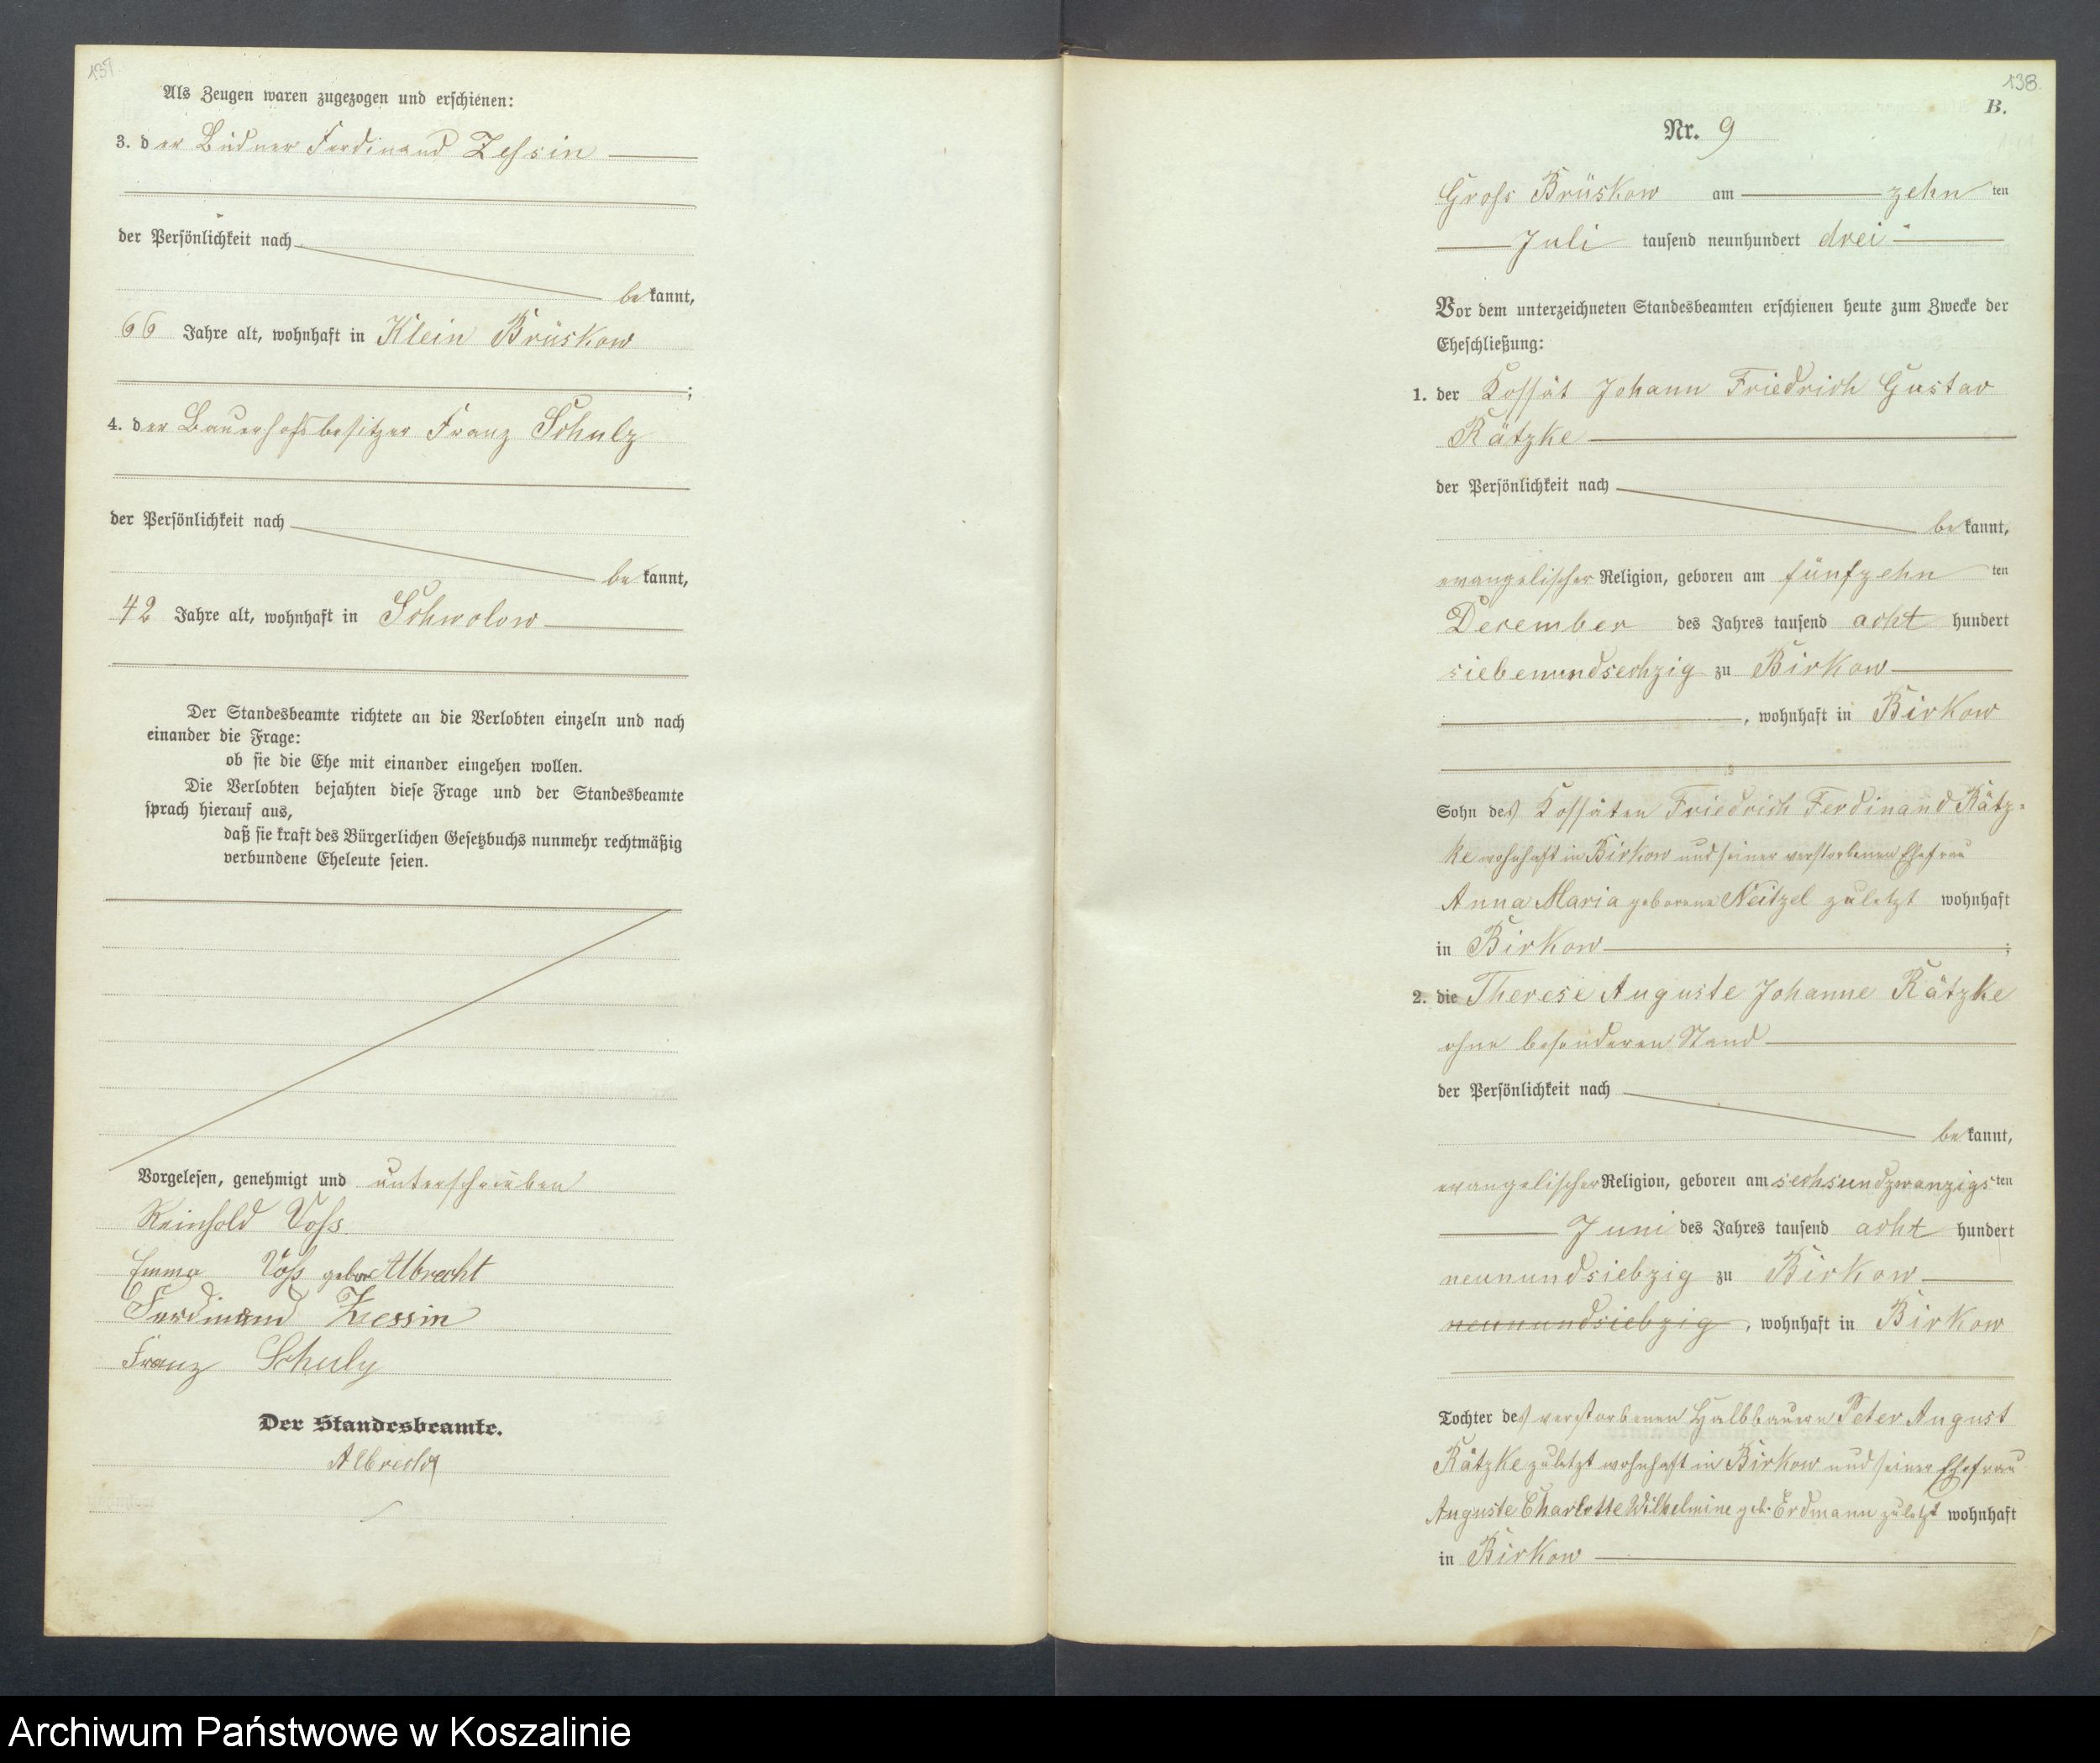 137.
Als Zeugen waren zugezogen und erschienen:
3. der Büdner Ferdinand Zessin
der Persönlichkeit nach
bekannt,
66 Jahre alt, wohnhaft in Klein Brüskow
;
4. der Bauerhofsbesitzer Franz Schulz
der Persönlichkeit nach
bekannt,
42 Jahre alt, wohnhaft in Schwolow
Der Standesbeamte richtete an die Verlobten einzeln und nach
einander die Frage:
ob sie die Ehe mit einander eingehen wollen.
Die Verlobten bejahten diese Frage und der Standesbeamte
sprach hierauf aus,
daß sie kraft des Bürgerlichen Gesetzbuchs nunmehr rechtmäßig
verbundene Eheleute seien.
Vorgelesen, genehmigt und unterschrieben
Reinhold Voß.
Emma Voß gebor Albrecht
Ferdinand Zessin
Franz Schulz
Der Standesbeamte.
Albrecht
138.
B.
Nr. 9
Groß Brüskow am zehn ten
Juli tausend neunhundert drei
Vor dem unterzeichneten Standesbeamten erschienen heute zum Zwecke der
Eheschließung:
1. der Kossät Johann Friedrich Gustav
Rätzke
der Persönlichkeit nach
bekannt,
evangelischer Religion, geboren am fünfzehn ten
Dezember des Jahres tausend acht hundert
siebenundsechzig zu Birkow
, wohnhaft in Birkow
Sohn des Kossäten Friedrich Ferdinand Rätz-
ke wohnhaft in Birkow und seiner verstorbenen Ehefrau
Anna Maria geborene Neitzel zuletzt wohnhaft
in Birkow ;
2. die Therese Auguste Johanne Rätzke
ohne besonderen Stand
der Persönlichkeit nach
bekannt,
evangelischer Religion, geboren am sechsundzwanzigsten
Juni des Jahres tausend acht hundert
neunundsiebzig zu Birkow
neunundsiebzig, wohnhaft in Birkow
Tochter des verstorbenen Halbbauern Peter August
Rätzke zuletzt wohnhaft in Birkow und seiner Ehefrau
Auguste Charlotte Wilhelmine geb. Erdmann zuletzt wohnhaft
in Birkow
Archiwum Państwowe w Koszalinie